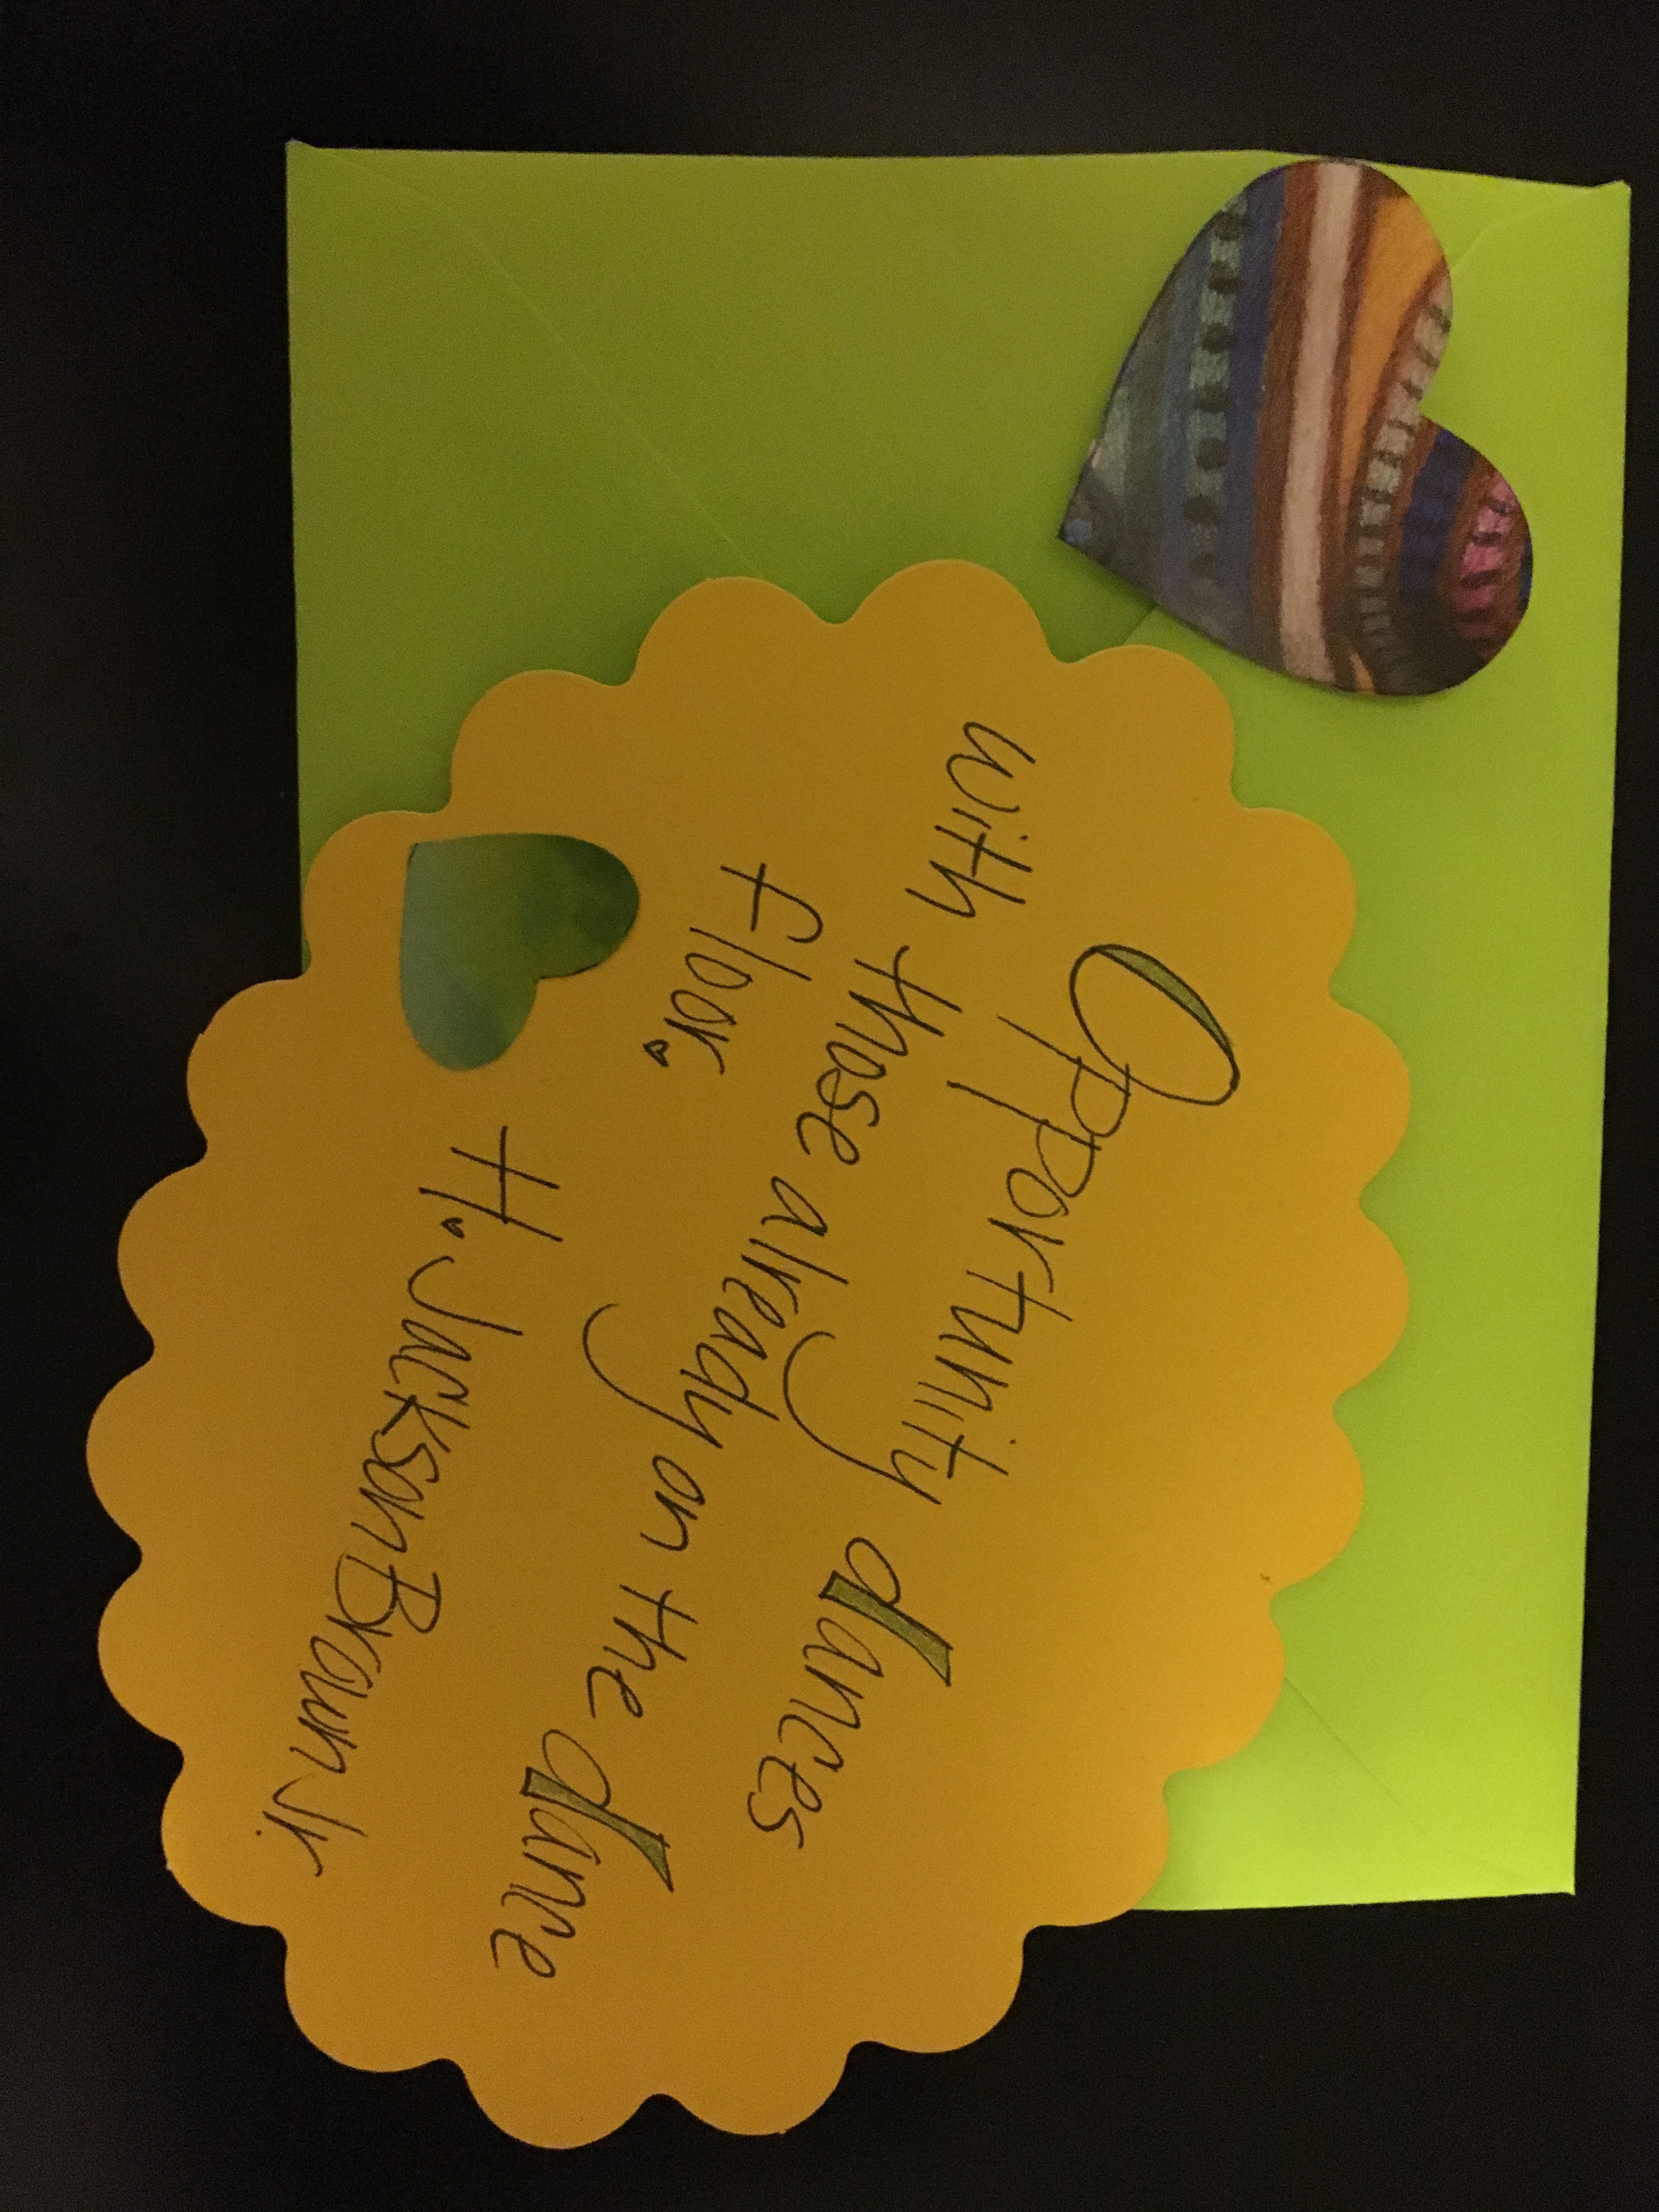 Opportunity dances
with those already on the dance
floor.
H. Jackson Brown Jr.